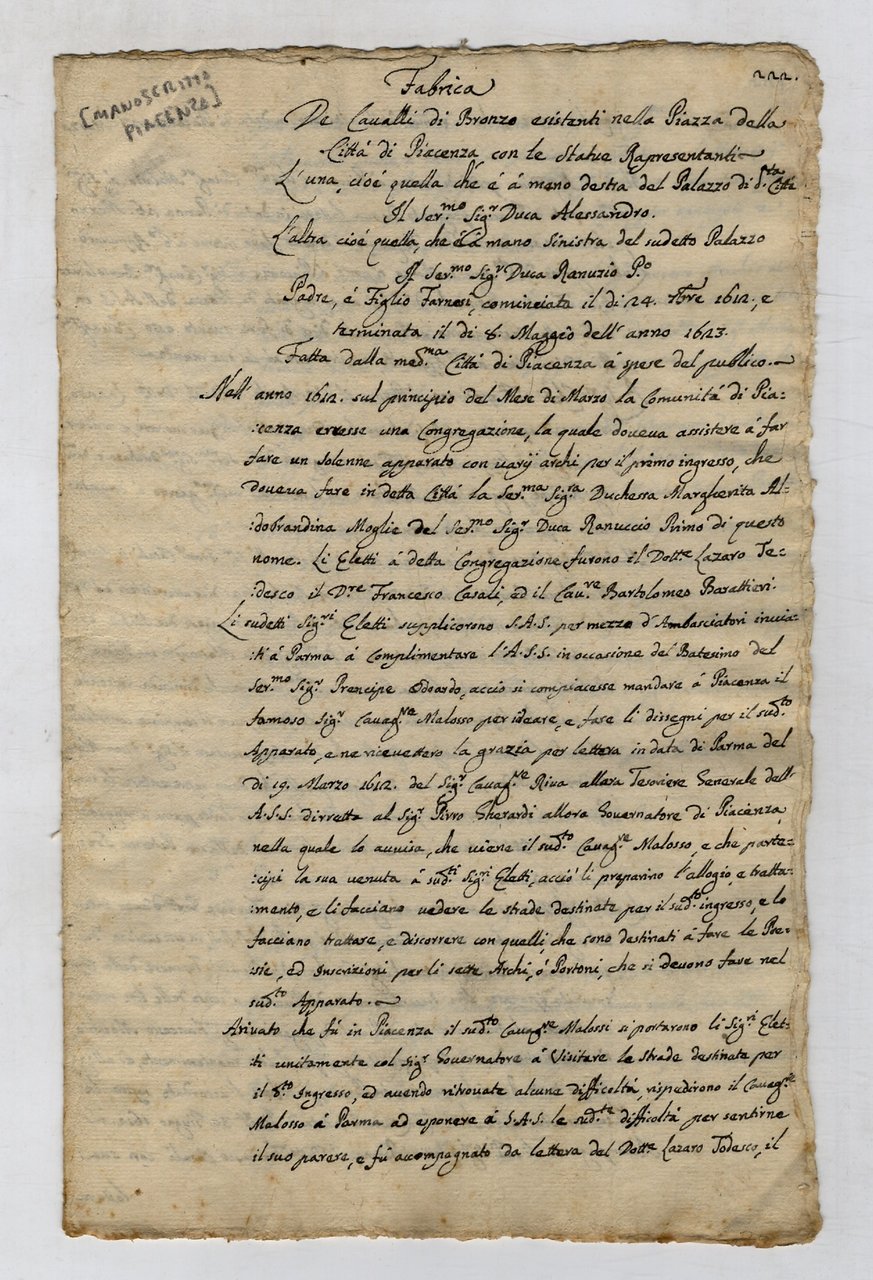 222.
[MANOSCRITTO
PIACENZA]
Fabrica
De Cavalli di Bronzo esistenti nella Piazza della
Cittá di Piacenza con le Statue Rapresentanti
L'una, cioé quella ché é á mano destra del Palazzo di d.ta Cittá
Il Ser.mo Sig.r Duca Alessandro.
L'altra cioé quella, che é á mano sinistra del sudetto Palazzo
Il Ser.mo Sig.r Duca Ranuzio P.o
Padre, é Figlio Farnesi, cominciata il di 24. 1612., e
terminata il di 8. Maggio dell' anno 1623.
Fatta dalla med.ma Cittá di Piacenza á spese del publico.
Nell' anno 1612. sul principio del Mese di Marzo la Comunitá di Pia-
:cenza eresse una Congregazione, la quale doveva assistere á far
fare un solenne apparato con varij archi per il primo ingresso, che
doveva fare in detta Cittá la Ser.ma Sig.ra Duchessa Margherita Al-
:dobrandina Moglie del Ser.mo Sig.r Duca Ranuccio Primo di questo
nome. Li Eletti á detta Congregazione furono il Dott.re Lazaro Te-
:desco il D.re Francesco Casali, ed il Cau.re Bartolomeo Barattieri.
Li sudetti Sig.ri Eletti supplicorono S.A.S. per mezzo d'Ambasciatori invia-
:ti á Parma á Complimentare l'A.S.S. in occasione del Batesimo del
Ser.mo Sig.r Prencipe Odoardo, acció si compiacesse mandare á Piacenza il
famoso Sig.r Cavag.re Malosso per ideare, e fare li dissegni per il sud.to
Apparato, e ne ricevettero la grazia per lettera in data di Parma del
di 19. Marzo 1612. del Sig.r Cavag.re Riva allora Tesoriere Generale dell'
A.S.S. dirretta al Sig.r Pirro Gherardi allora Governatore di Piacenza,
nella quale lo avvisa, che viene il sud.to Cavag.re Malosso, e che parte-
:cipi la sua venuta á sud.ti Sig.ri Eletti, acció li preparino l'allogio, e tratta-
:mento, e li facciano vedere le strade destinate per il sud.to ingresso, e lo
facciano trattare, e discorrere con quelli, che sono destinati á fare le Poe-
sie, ed Inscrizioni per li sette Archi, ó Portoni, che si devono fare nel
sud.to Apparato.
Arivato che fú in Piacenza il sud.to Cavag.re Malossi si portarono li Sig.ri Elet-
:ti unitamente col Sig.r Governatore á Visitare le strade destinate per
il Ingresso, ed avendo ritrovate alcune difficoltá, rispedirono il Cavag.re
Malosso á Parma ad esponere á S.A.S. le sud.te difficoltá per sentirne
il suo parere, e fú accompagnato da lettera del Dott.re Lazaro Todesco, il